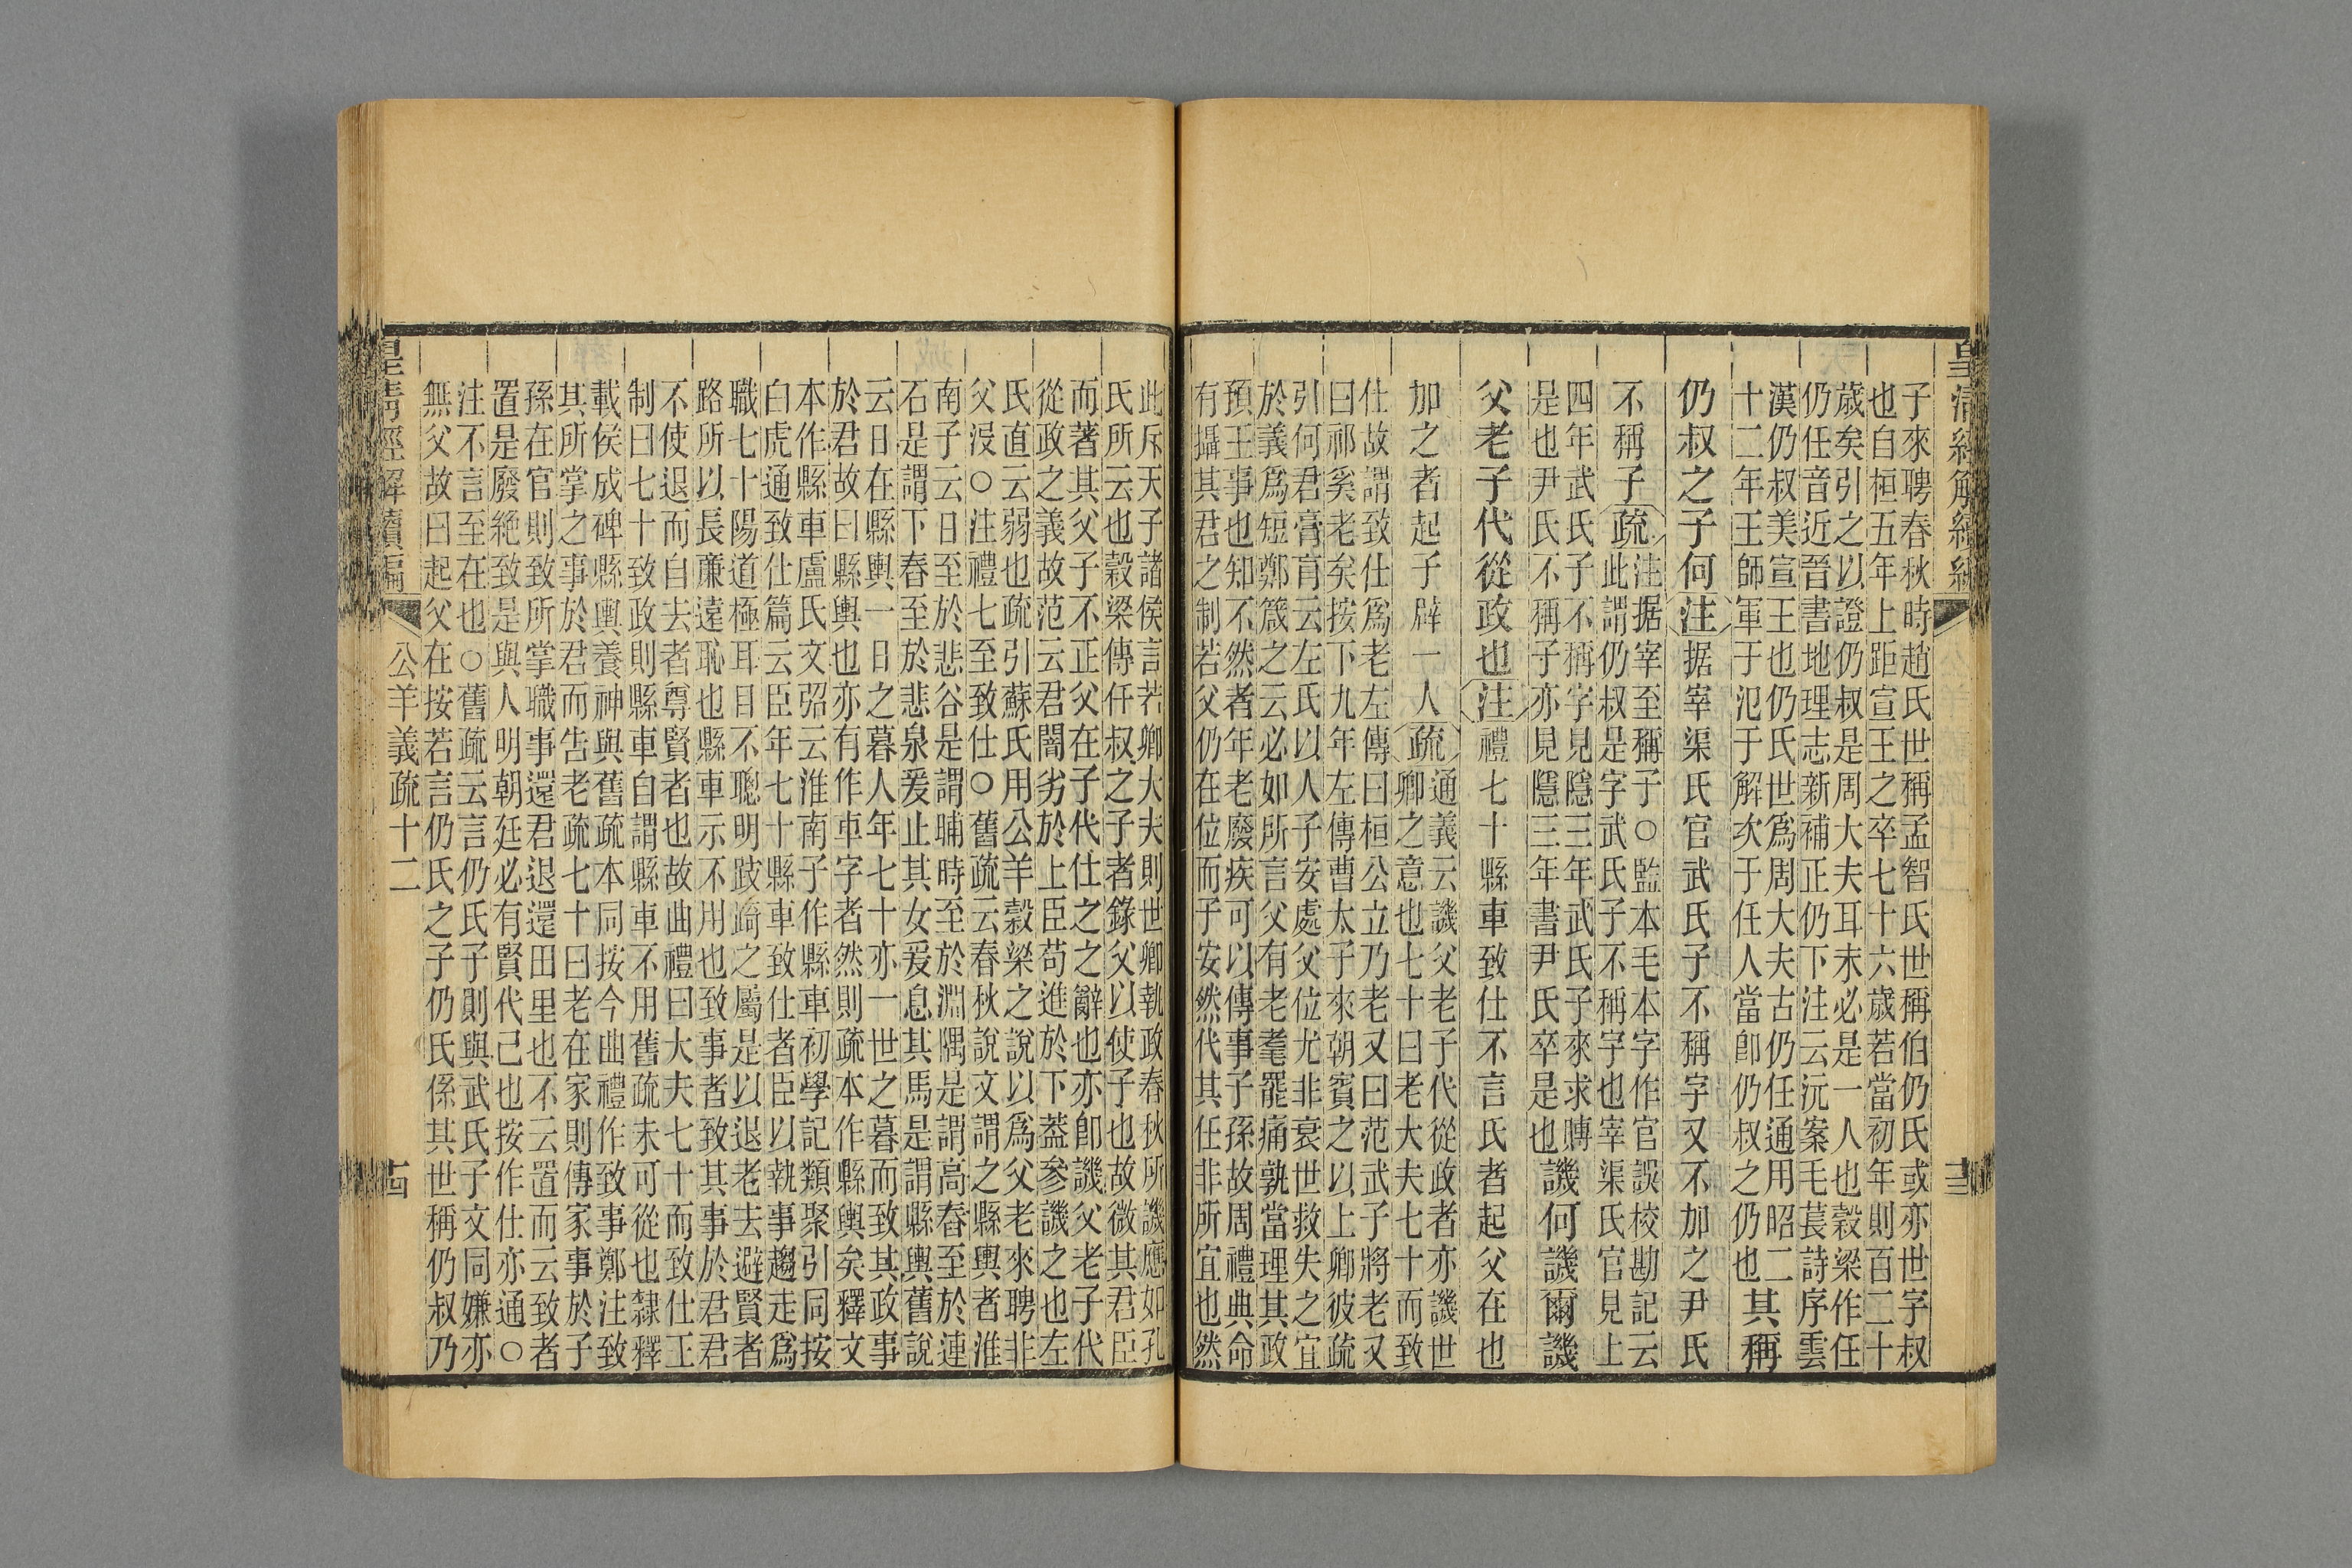 皇清經解續編
子來聘春秋時趙氏世稱孟智氏世稱伯仍氏或亦世字叔
也自桓五年上距宣王之卒七十六歲若當初年則百二十
歲矣引之以證仍叔是周大夫耳末必是一人也穀梁作任
仍任音近晉書地理志新補正仍下注云沅案毛萇詩序雲
漢仍叔美宣王也仍氏世爲周大夫古仍任通用昭二
十二年王師軍于氾于解次于任人當卽仍叔之仍也
其稱
仍叔之子何
注
据宰渠氏官武氏子不稱字又不加之尹氏
不稱子
疏
注据宰至稱子○監本毛本字作官誤校勘記云
此謂仍叔是字武氏子不稱字也宰渠氏官見上
四年武氏子不稱字見隱三年武氏子來求賻
是也尹氏不稱子亦見隱三年書尹氏卒是也
譏何譏爾譏
父老子代從政也
注
禮七十縣車致仕不言氏者起父在也
加之者起子辟一人
疏
通義云譏父老子代從政者亦譏世
卿之意也七十曰老大夫七十而致
仕故謂致仕爲老左傳曰桓公立乃老又曰范武子將老又
曰祁奚老矣按下九年左傳曹太子來朝賓之以上卿彼疏
引何君膏肓云左氏以人子安處父位尤非衰世救失之宜
於義爲短鄭箴之云必如所言父有老耄罷痛孰當理其政
預王事也知不然者年老廢疾可以傳事子孫故周禮典命
有攝其君之制若父仍在位而子安然代其任非所宜也然
此斥天子諸侯言若卿大夫則世卿執政春秋所譏應如孔
氏所云也穀梁傳任叔之子者錄父以使子也故微其君臣
而著其父子不正父在子代仕之之辭也亦卽譏父老子代
從政之義故范云君闇劣於上臣苟進於下葢參譏之也左
氏直云弱也疏引蘇氏用公羊穀梁之說以爲父老來聘非
父沒○注禮七至致仕○舊疏云春秋說文謂之縣輿者淮
南子云日至於悲谷是謂晡時至於淵隅是謂高舂至於連
石是謂下舂至於悲泉爰止其女爰息其馬是謂縣輿舊說
云日在縣輿一日之暮人年七十亦一世之暮而致其政事
於君故曰縣輿也亦有作車字者然則疏本作縣輿矣釋文
本作縣車盧氏文弨云淮南子作縣車初學記類聚引同按
白虎通致仕篇云臣年七十縣車致仕者臣以執事趨走爲
職七十陽道極耳目不聰明跂踦之屬是以退老去避賢者
路所以長亷遠恥也縣車示不用也致事者致其事於君君
不使退而自去者尊賢者也故曲禮曰大夫七十而致仕王
制曰七十致政則縣車自謂縣車不用舊疏未可從也隸釋
載侯成碑縣輿養神與舊疏本同按今曲禮作致事鄭注致
其所掌之事於君而吿老疏七十曰老在家則傳家事於子
孫在官則致所掌職事還君退還田里也不云置而云致者
置是廢絕致是與人明朝廷必有賢代己也按作仕亦通○
注不言至在也○舊疏云言仍氏子則與武氏子文同嫌亦
無父故曰起父在按若言仍氏之子仍氏係其世稱仍叔乃
皇清經解續編
公羊義疏十二